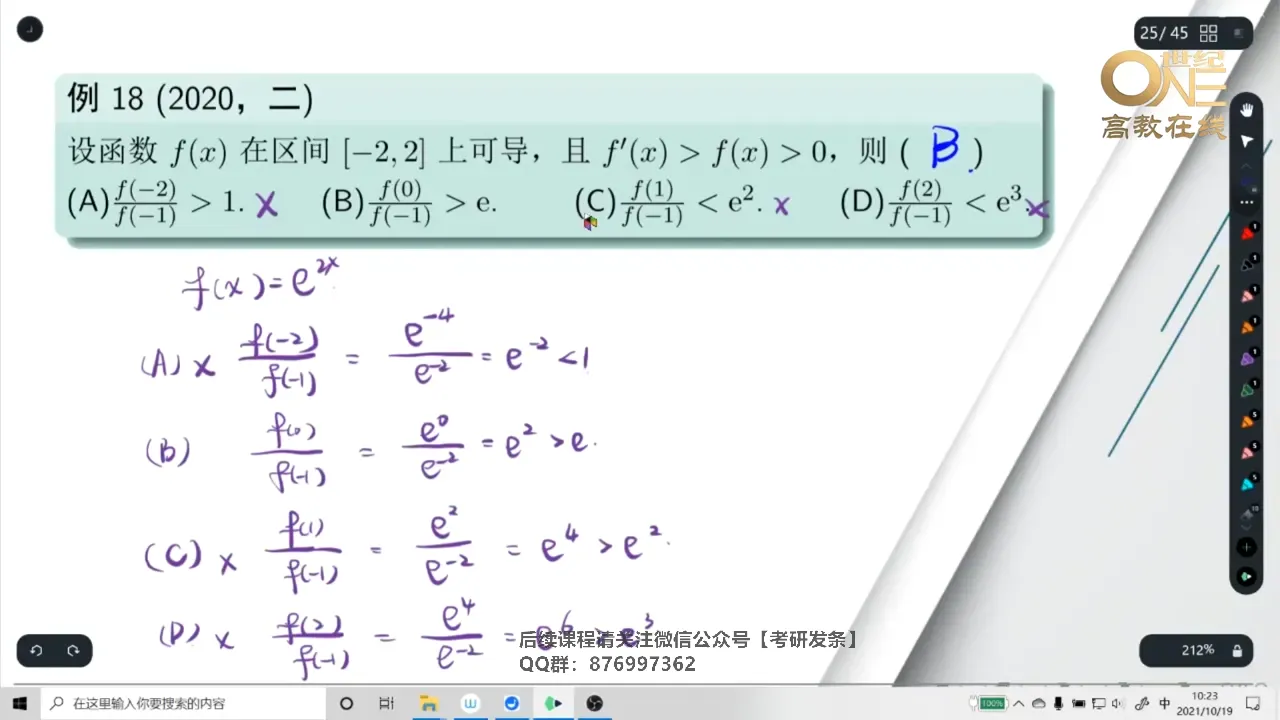 25/ 45
世纪
ONE
高教在线
例 18 (2020，二)
设函数 f(x) 在区间 [−2, 2] 上可导，且 f′(x) > f(x) > 0，则 ( B )
(A) f(−2)/f(−1) > 1. × (B) f(0)/f(−1) > e. (C) f(1)/f(−1) < e². × (D) f(2)/f(−1) < e³. ×
f(x) = e^{2x}
(A) × f(-2)/f(-1) = e^{-4}/e^{-2} = e^{-2} < 1
(B) f(0)/f(-1) = e^0/e^{-2} = e^2 > e.
(C) × f(1)/f(-1) = e^2/e^{-2} = e^4 > e^2.
(D) × f(2)/f(-1) = e^4/e^{-2} = e^6 > e^3
后续课程请关注微信公众号【考研发条】
QQ群：876997362
212%
在这里输入你要搜索的内容
100%
中
10:23
2021/10/19